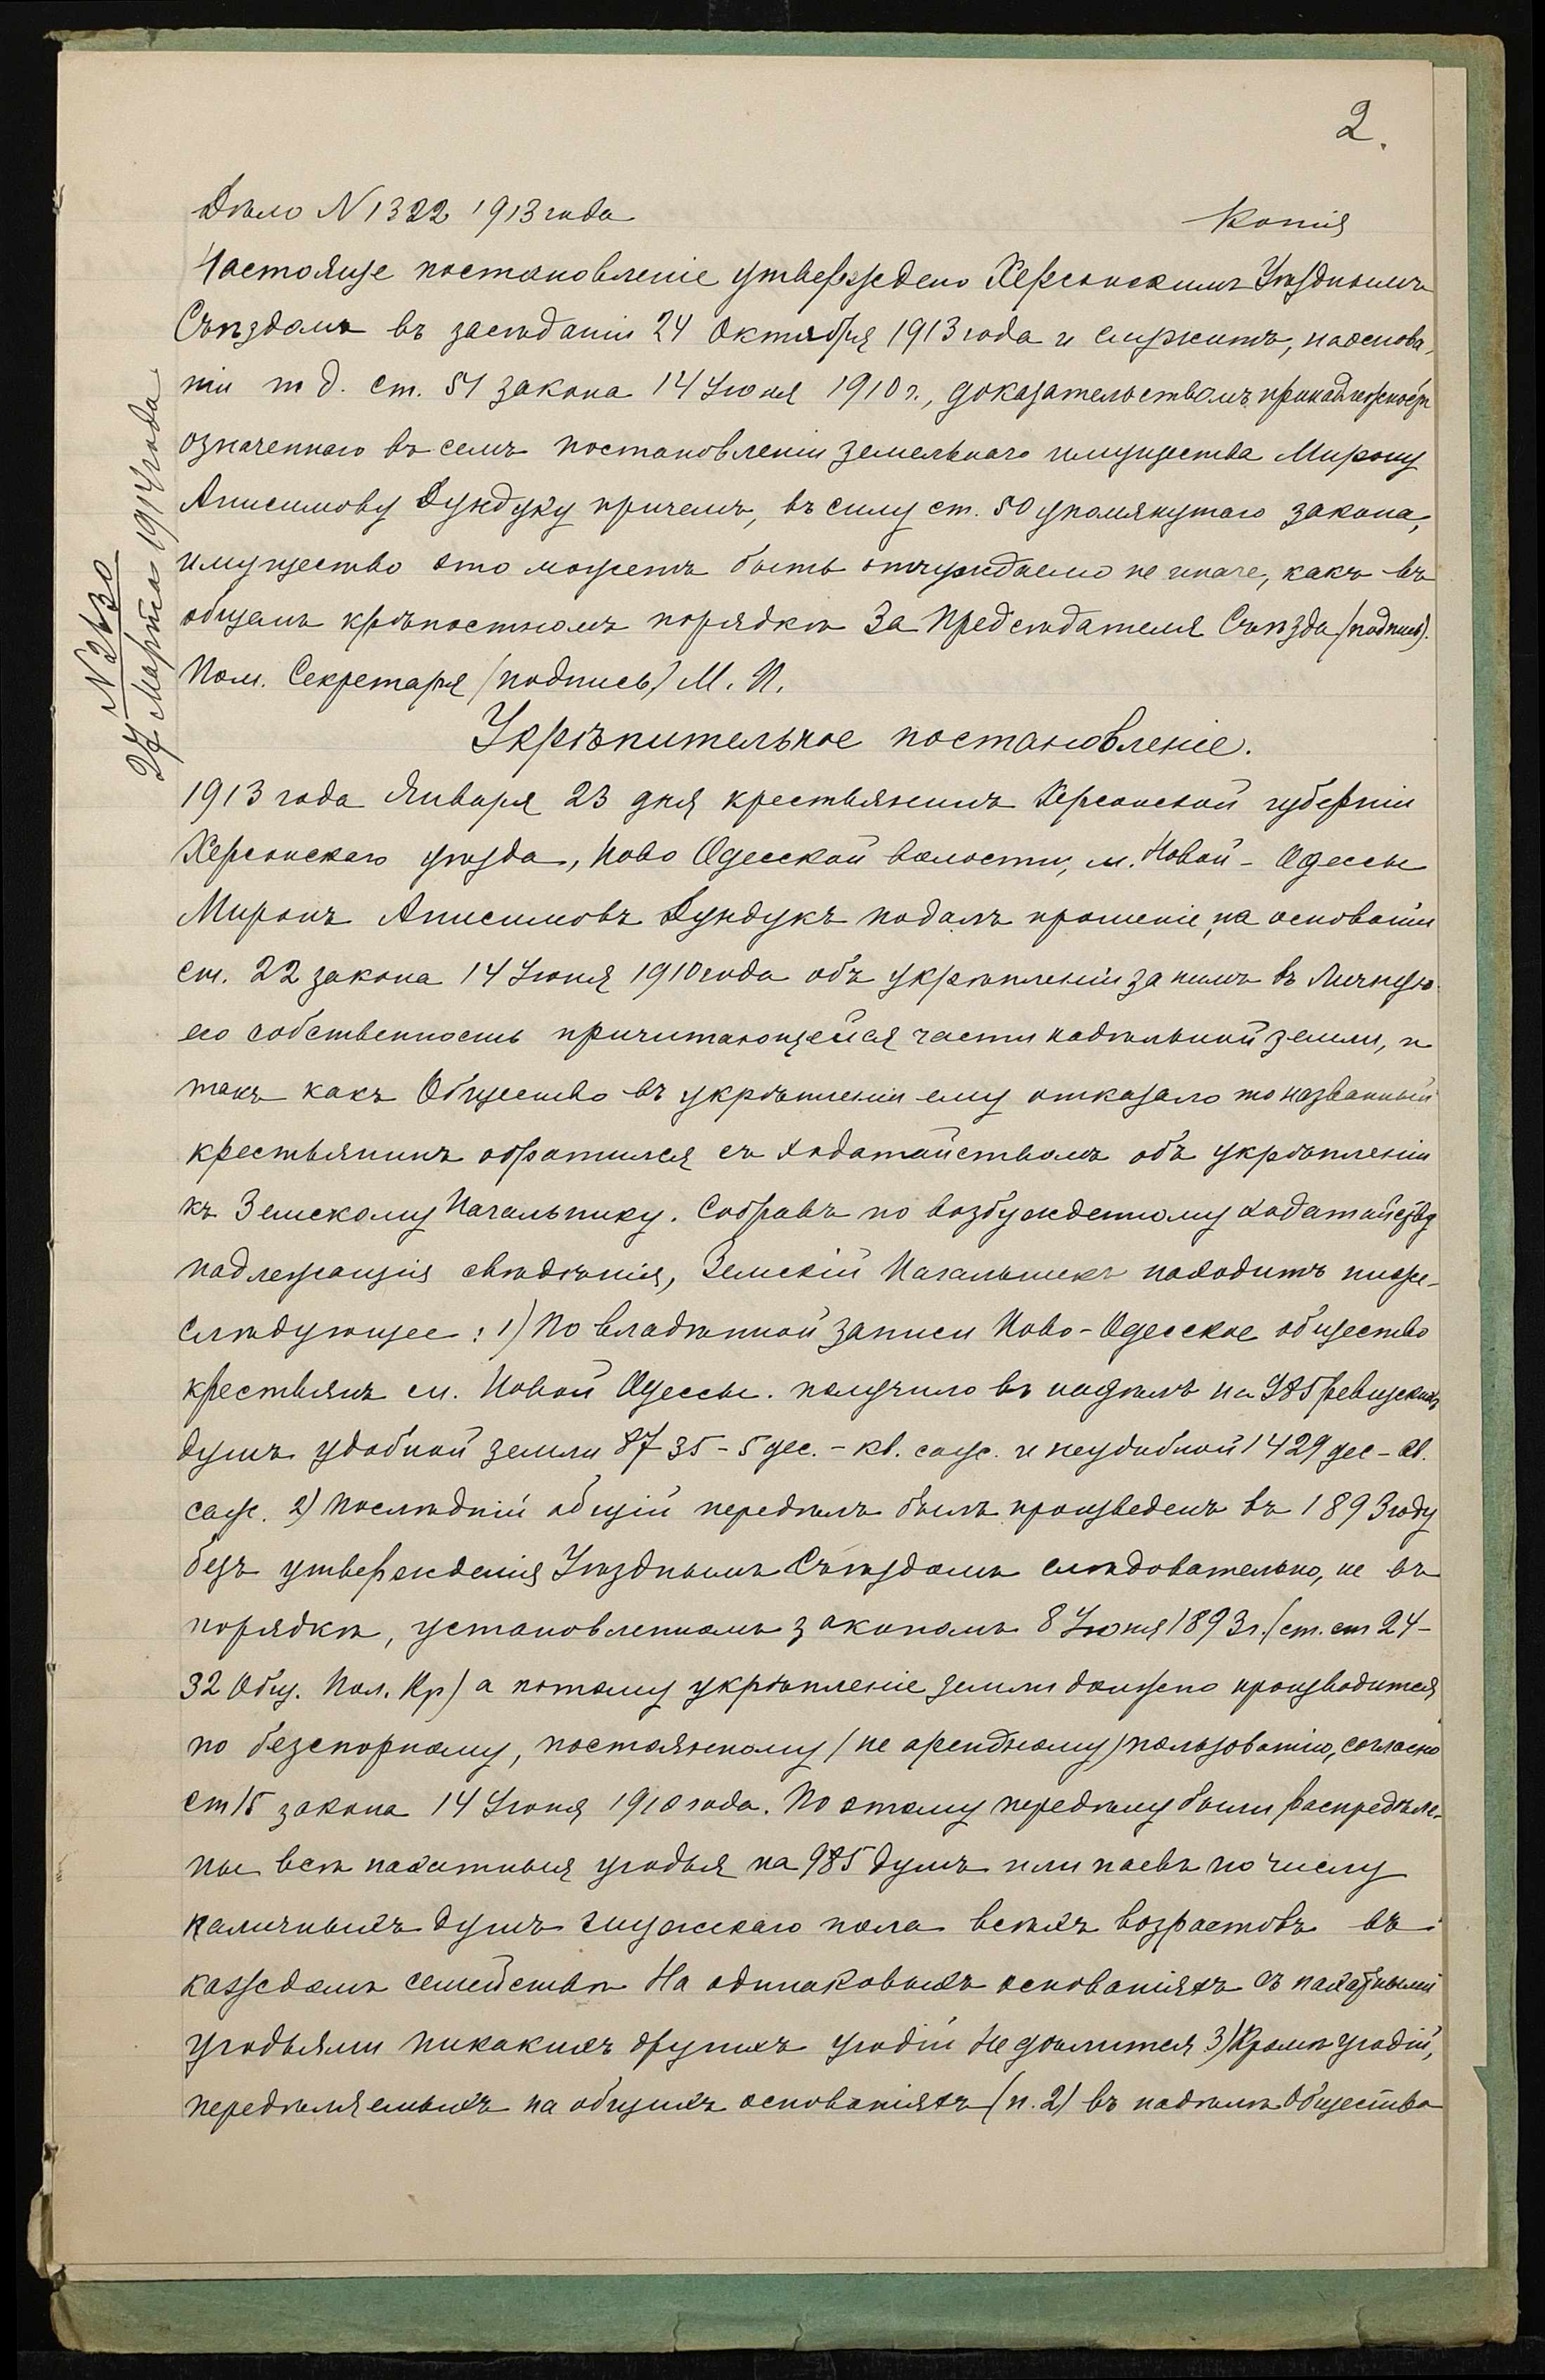 2.
Дѣло № 1322 1913 года
Копія
Настоящее постановленіе утверждено Херсонскимъ Уѣзднымъ
Съѣздомъ въ засѣданіи 24 Октября 1913 года и служитъ, на основа-
ніи п д. ст. 51 закона 14 Іюня 1910 г., доказательствомъ принадлежности
означеннаго въ семъ постановленіи земельнаго имущества Мирону
Анисимову Дундуку причемъ, въ силу ст. 50 упомянутаго закона,
имущество это можетъ быть отчуждаемо не иначе, какъ въ
общемъ крѣпостномъ порядкѣ За Предсѣдателя Съѣзда /подпись/.
Пом. Секретаря /подпись/ М. П.
№ 2630
27 Марта 1914 года
Укрѣпительное постановленіе.
1913 года Января 23 дня крестьянинъ Херсонской губерніи
Херсонскаго уѣзда, Ново Одесской волости, м. Новой-Одессы
Миронъ Анисимовъ Дундукъ подалъ прошеніе, на основаніи
ст. 22 закона 14 Іюня 1910 года объ укрѣпленіи за нимъ въ личную
его собственность причитающейся части надѣльной земли, и
такъ какъ Общество въ укрѣпленіи ему отказало то названный
крестьянинъ обратился съ ходатайствомъ объ укрѣпленіи
къ Земскому Начальнику. Собравъ по возбужденному ходатайству
надлежащія свѣдѣнія, Земскій Начальникъ находитъ ниже-
слѣдующее: 1) По владѣнной записи Ново-Одесское общество
крестьянъ м. Новой Одессы. получило въ надѣлъ на 985 ревизскихъ
душъ удобной земли 8735-5 дес. - кв. саж. и неудобной 1429 дес - кв.
саж. 2) Послѣдній общій передѣлъ былъ произведенъ въ 1893 году
безъ утвержденія Уѣзднымъ Съѣздомъ слѣдовательно, не въ
порядкѣ, установленномъ закономъ 8 Іюня 1893 г. /ст. ст 24-
32 Общ. Пол. Кр/ а потому укрѣпленіе земли должно производится
по безспорному, постоянному /не арендному/ пользованію, согласно
ст 15 закона 14 Іюня 1910 года. По этому передѣлу были распредѣле-
ны всѣ пахатныя угодья на 985 душъ или паевъ по числу
наличныхъ душъ мужскаго пола всѣхъ возрастовъ въ
каждомъ семействѣ На одинаковыхъ основаніяхъ съ пахатными
угодьями никакихъ другихъ угодій не дѣлится 3) Кромѣ угодій,
передѣляемыхъ на общихъ основаніяхъ (п. 2) въ надѣлѣ Общества